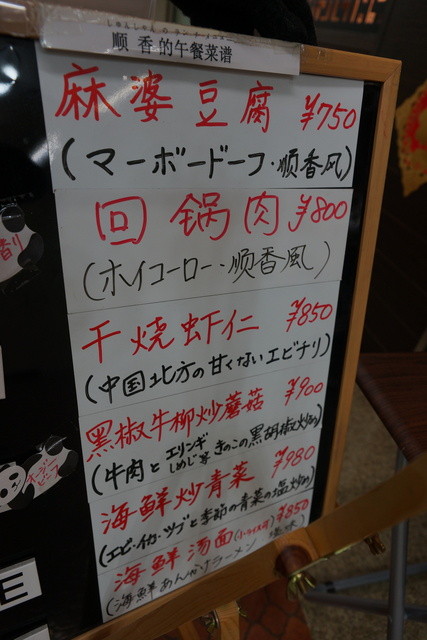 顺香的午餐菜谱
麻婆豆腐 ¥750
(マーボードーフ・顺香风)
回锅肉 ¥800
(ホイコーロー・順香風)
干烧虾仁 ¥850
(中国北方の甘くないエビチリ)
黑椒牛柳炒蘑菇 ¥900
(牛肉とエリンギしめじ等きのこの黒胡椒炒め)
海鮮炒青菜 ¥980
(エビ・イカ・ツブと季節の青菜の塩炒め)
海鮮汤面 ¥850
(海鮮あんかけラーメン 塩味)
E